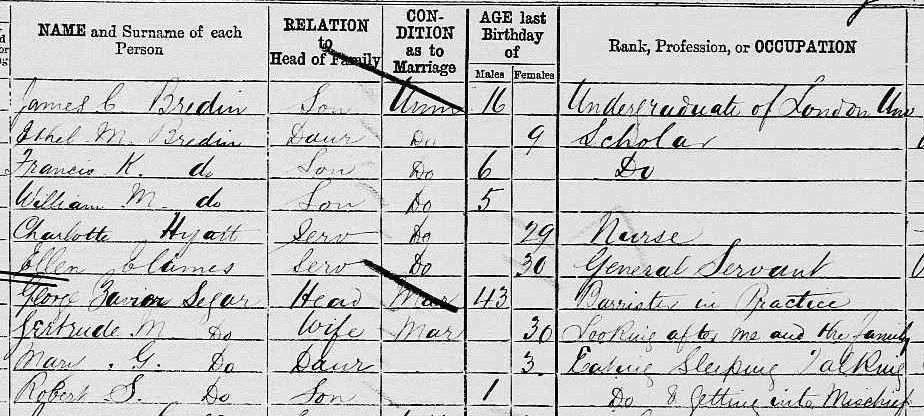 NAME and Surname of each Person
RELATION to Head of Family
CONDITION as to Marriage
AGE last Birthday of
Males Females
Rank, Profession, or OCCUPATION
James C Bredin Son Unm 16 Undergraduate of London Uni
Ethel M. Bredin Daur Do 9 Scholar
Francis K. do Son Do 6 Do
William M. do Son Do 5
Charlotte Hyatt Serv Do 29 Nurse
Ellen Serv Do 30 General Servant
George Segar Head Mar 43 Barrister in Practice
Gertrude M Do Wife Mar 30 Looking after me and the family
Mary . G. Do Daur 3 Eating Sleeping Talking
Robert S. Do Son 1 Do & getting into Mischief